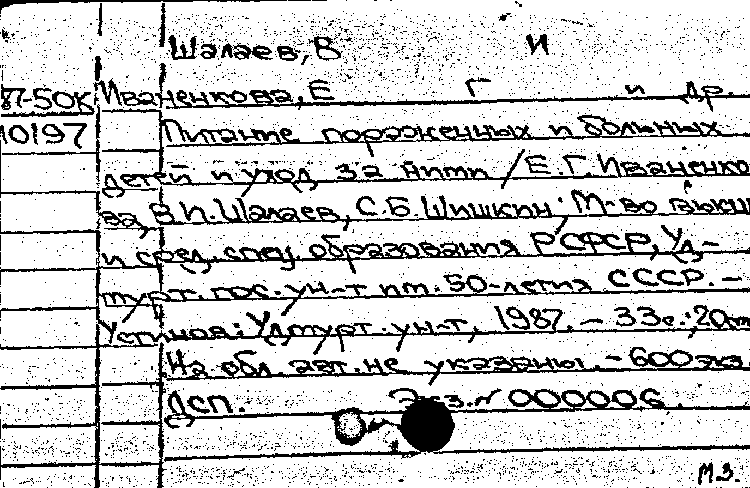 Шалаев, В И
П-50к Иваненкова, Е Г и др.
10197 Питание пораженных и больных
детей и уход за ними / Е.Г. Иваненко-
ва, В.И. Шалаев, С.Б. Шишкин; М-во высш.
и сред. спец. образования РСФСР, Уд-
мурт. гос. ун-т им. 50-летия СССР. –
Устинов: Удмурт. ун-т, 1987. – 33с.; 20см
На обл. авт. не указаны. – 600 экз.
Дсп. Экз. № 000006.
М.З.